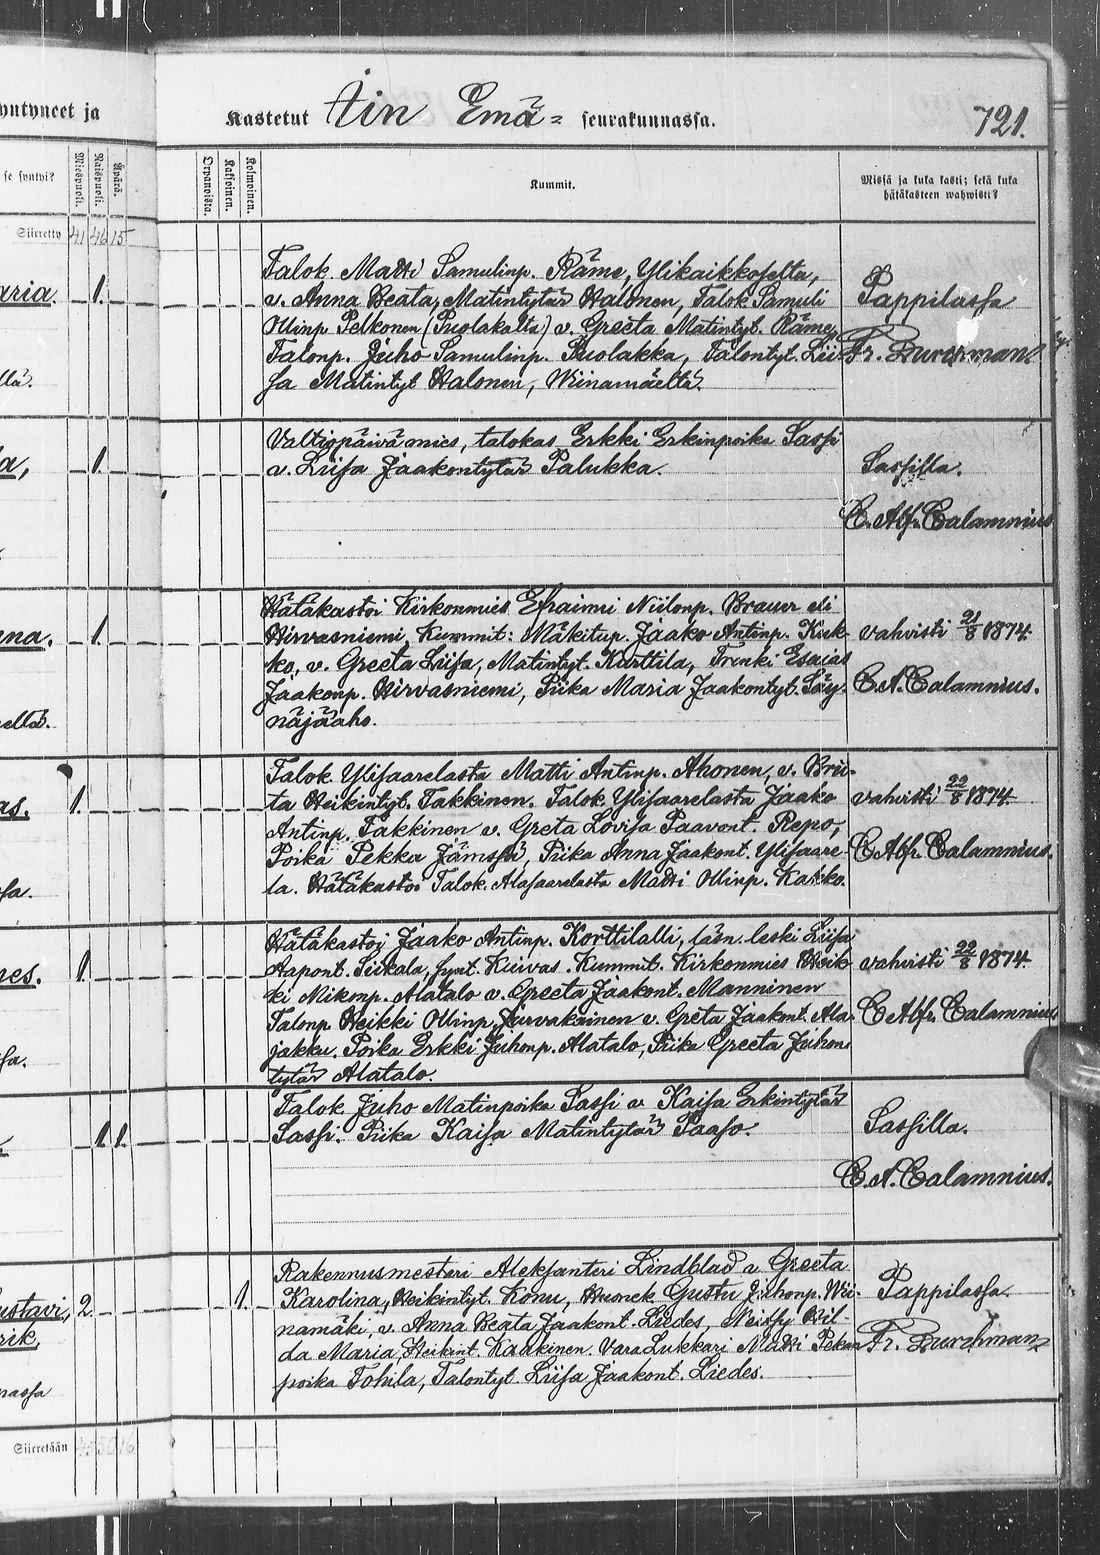 yntyneet ja
Kastetut Iin Emä= seurakunnassa.
721.
se syntyi?
Miespuoli.
Naispuoli.
Äpärä.
Orpanoista.
Kaksoinen.
Kolmoinen.
Kummit.
Missä ja kuka kasti; sekä kuka
hätäkasteen wahwisti?
Siirretty 41 46 15
Talok Matti Samulinp. Räme, Ylikaikkoselta,
v. Anna Beata, Matintytär Halonen, Talok Samuli
Ollinp Pelkonen (Puolakalta) v. Greeta Matintyt. Räme,
Talonp. Juho Samulinp. Puolakka, Talontyt. Lii-
sa Matintyt Halonen, Wiinamäeltä.
aria. 1.
Pappilassa
Fr. Burchman
llä.
Valtiopäivämies, talokas Erkki Erkinpoika Sassi
v. Liisa Jaakontytär Palukka.
a, 1.
Sassilla.
C. Alfr. Calamnius
Hätäkastoi Kirkonmies Efraimi Niilonp. Brauer eli
Hirvasniemi, Kummit: Mäkitup. Jaako Antinp. Kuk-
ko, v. Greeta Liisa, Matintyt. Karttila, Trenki Esaias
Jaakonp. Hirvasniemi, Piika Maria Jaakontyt. Säy-
näjäaho.
nna. 1.
vahvisti 21/8 1874.
C. A. Calamnius.
eltä.
Talok Ylisaarelasta Matti Antinp. Ahonen, v. Brii-
ta Heikintyt. Takkinen. Talok Ylisaarelasta Jaako
Antinp. Takkinen v. Greta Lovisa Paavont. Repo,
Poika Pekka Jämsä, Piika Anna Jaakont. Ylisaare-
la. Hätäkastoi Talok. Alasaarelasta Matti Ollinp. Kakko.
as. 1.
vahvisti 22/8 1874.
C Alfr. Calamnius.
sa.
Hätäkastoi Jaako Antinp. Korttilalli, läsn. leski Liisa
Aapont. Siikala, synt. Kiirvas. Kummit. Kirkonmies Heik-
ki Mikonp. Alatalo v. Greeta Jaakont. Manninen
Talonp Heikki Ollinp. Jurvakainen v. Greta Jaakont. Ala-
jakku. Poika Erkki Juhonp. Alatalo, Piika Greeta Juhon
tytär Alatalo.
nes. 1.
vahvisti 22/8 1874.
C Alfr. Calamnius
sa.
Talok Juho Matinpoika Sassi v Kaisa Erkintytär
Sassi. Piika Kaisa Matintytär Paaso.
1. 1.
Sassilla.
C. A. Calamnius.
Rakennusmesteri Aleksanteri Lindblad v Greeta
Karolina, Heikintyt. Konu, Huonek Gustu Juhonp. Wii-
namäki, v. Anna Beata Jaakont. Liedes, Neitsy Hil-
da Maria, Heikint. Kaakinen. Vara Lukkari Matti Pekan
poika Tohila, Talontyt. Liisa Jaakont. Liedes.
ustavi, 2 1.
rik,
Pappilassa
Fr. Burchman
nassa
Siirretään 45 50 16